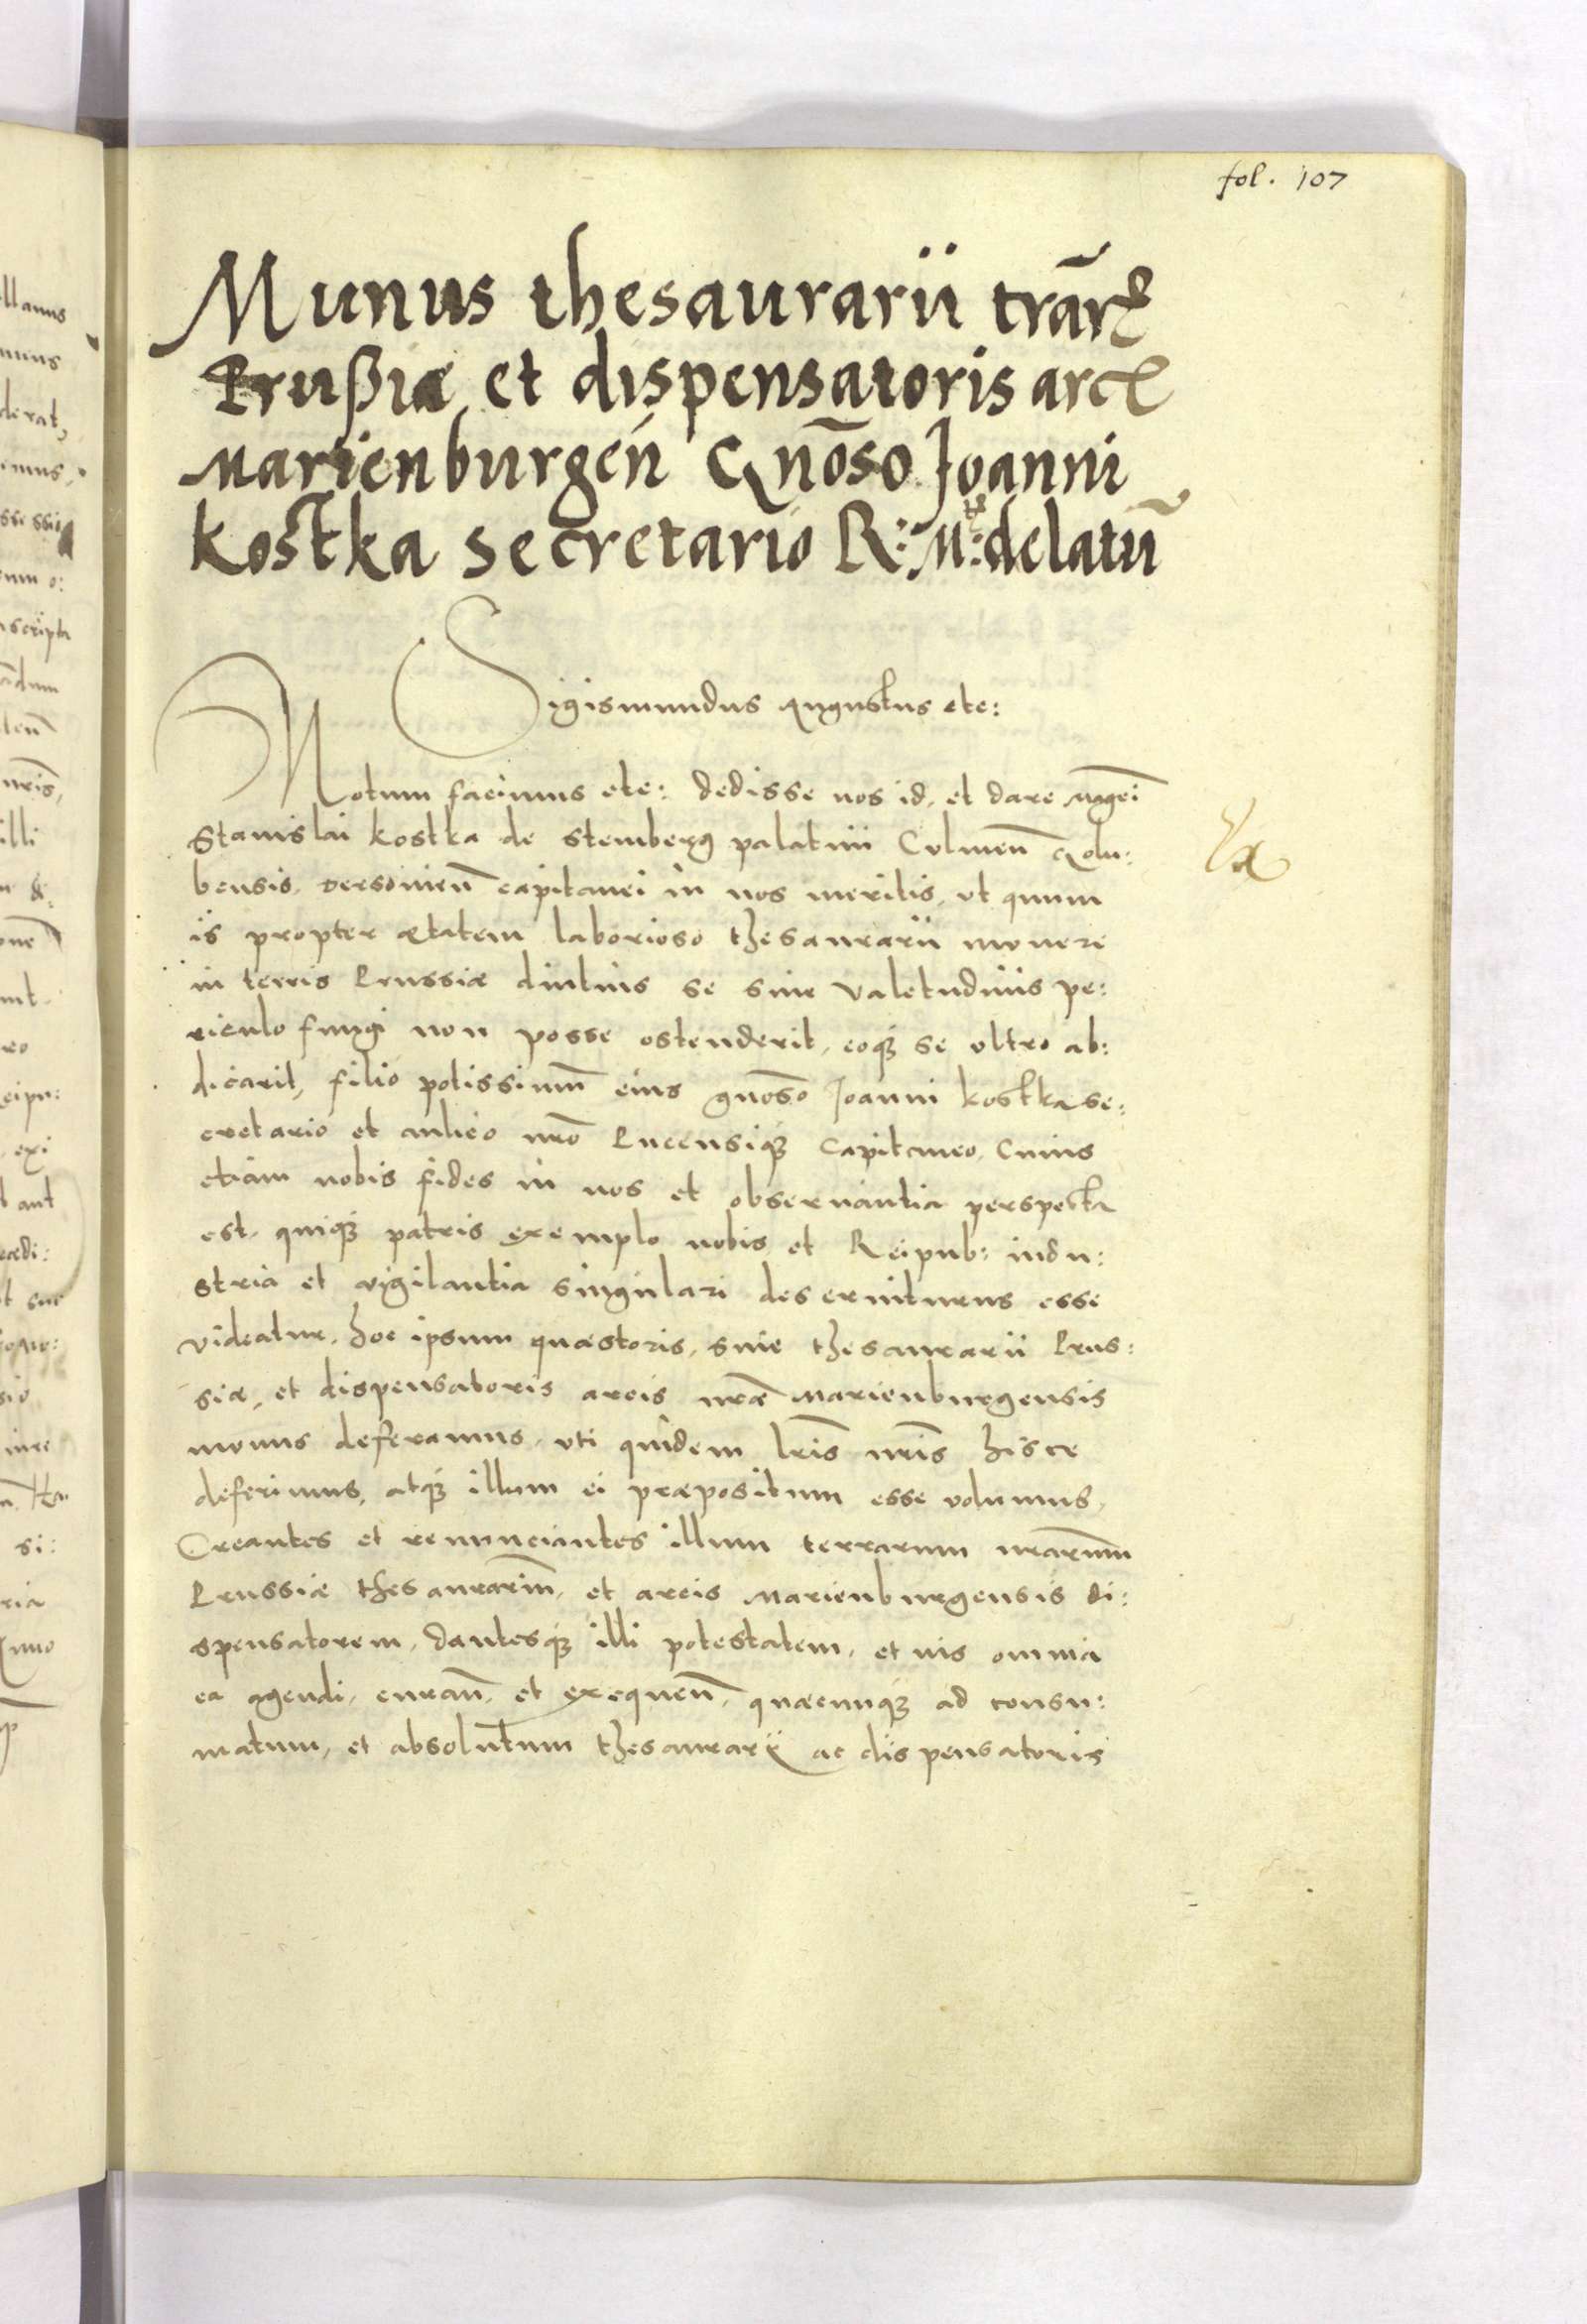 fol. 107
Munus thesaurarii trār
Prußiæ et dispensatoris arc
Marienburgeń Gnōso Joanni
kostka secretario R: M: delatū
Sigismundus Augustus etc:
Notum facimus etc: dedisse nos id, et dare Mgci
Stanislai kostka de Stemberg palatini Culmen Golu:
bensis, capitanei in nos meritis, ut quum
is propter ætatem laborioso thesaurarii munere
in terris Prussiæ diutius se sine valetudinis pe:
riculo fungi non posse ostenderit, eoq́ se ultro ab:
dicarit, filio potissimū eius gnōso Joanni kostka se:
cretario et aulico nrō Pucensiq́ Capitaneo, Cuius
etiam nobis fides in nos et observantia perspecta
est, quiq́ patris exemplo nobis et Reipub: indu:
stria et vigilantia singulari deserviturus esse
videatur, hoc ipsum quæstoris, sive thesaurarii Prus:
siæ, et dispensatoris arcis nræ Marienburgensis
munus deferamus, uti quidem lris nris hisce
deferimus, atq́ illum ei præpositum esse volumus,
Creantes et renunciantes illum terrarum nrarum
Prussiæ thesaurariū, et arcis Marienburgensis di:
spensatorem, dantesq́ illi potestatem, et ius omnia
ea agendi, curan̄, et exequen̄, quæcunq́ ad consu:
matum, et absolutum thesaurarii ac dispensatoris